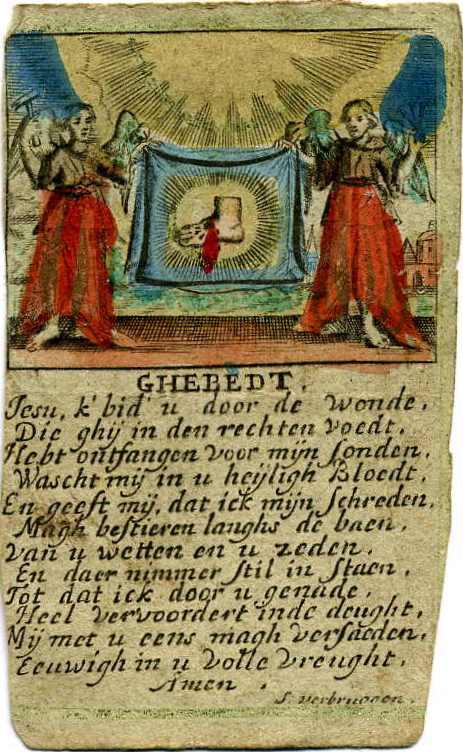 GHEBEDT.
Jesu, k' bid' u door de wonde,
Die ghij in den rechten voedt,
Hebt ontfangen voor mijn sonden,
Wascht mij in u heijligh Bloedt,
En geeft mij, dat ick mijn schreden,
Magh bestieren langhs de baen,
Van u wetten en u zeden,
En daer nimmer stil in staen,
Tot dat ick door u genade,
Heel vervoordert inde deught,
Mij met u eens magh versaeden,
Eeuwigh in u volle vreught,
Amen.
S. verbruggen.